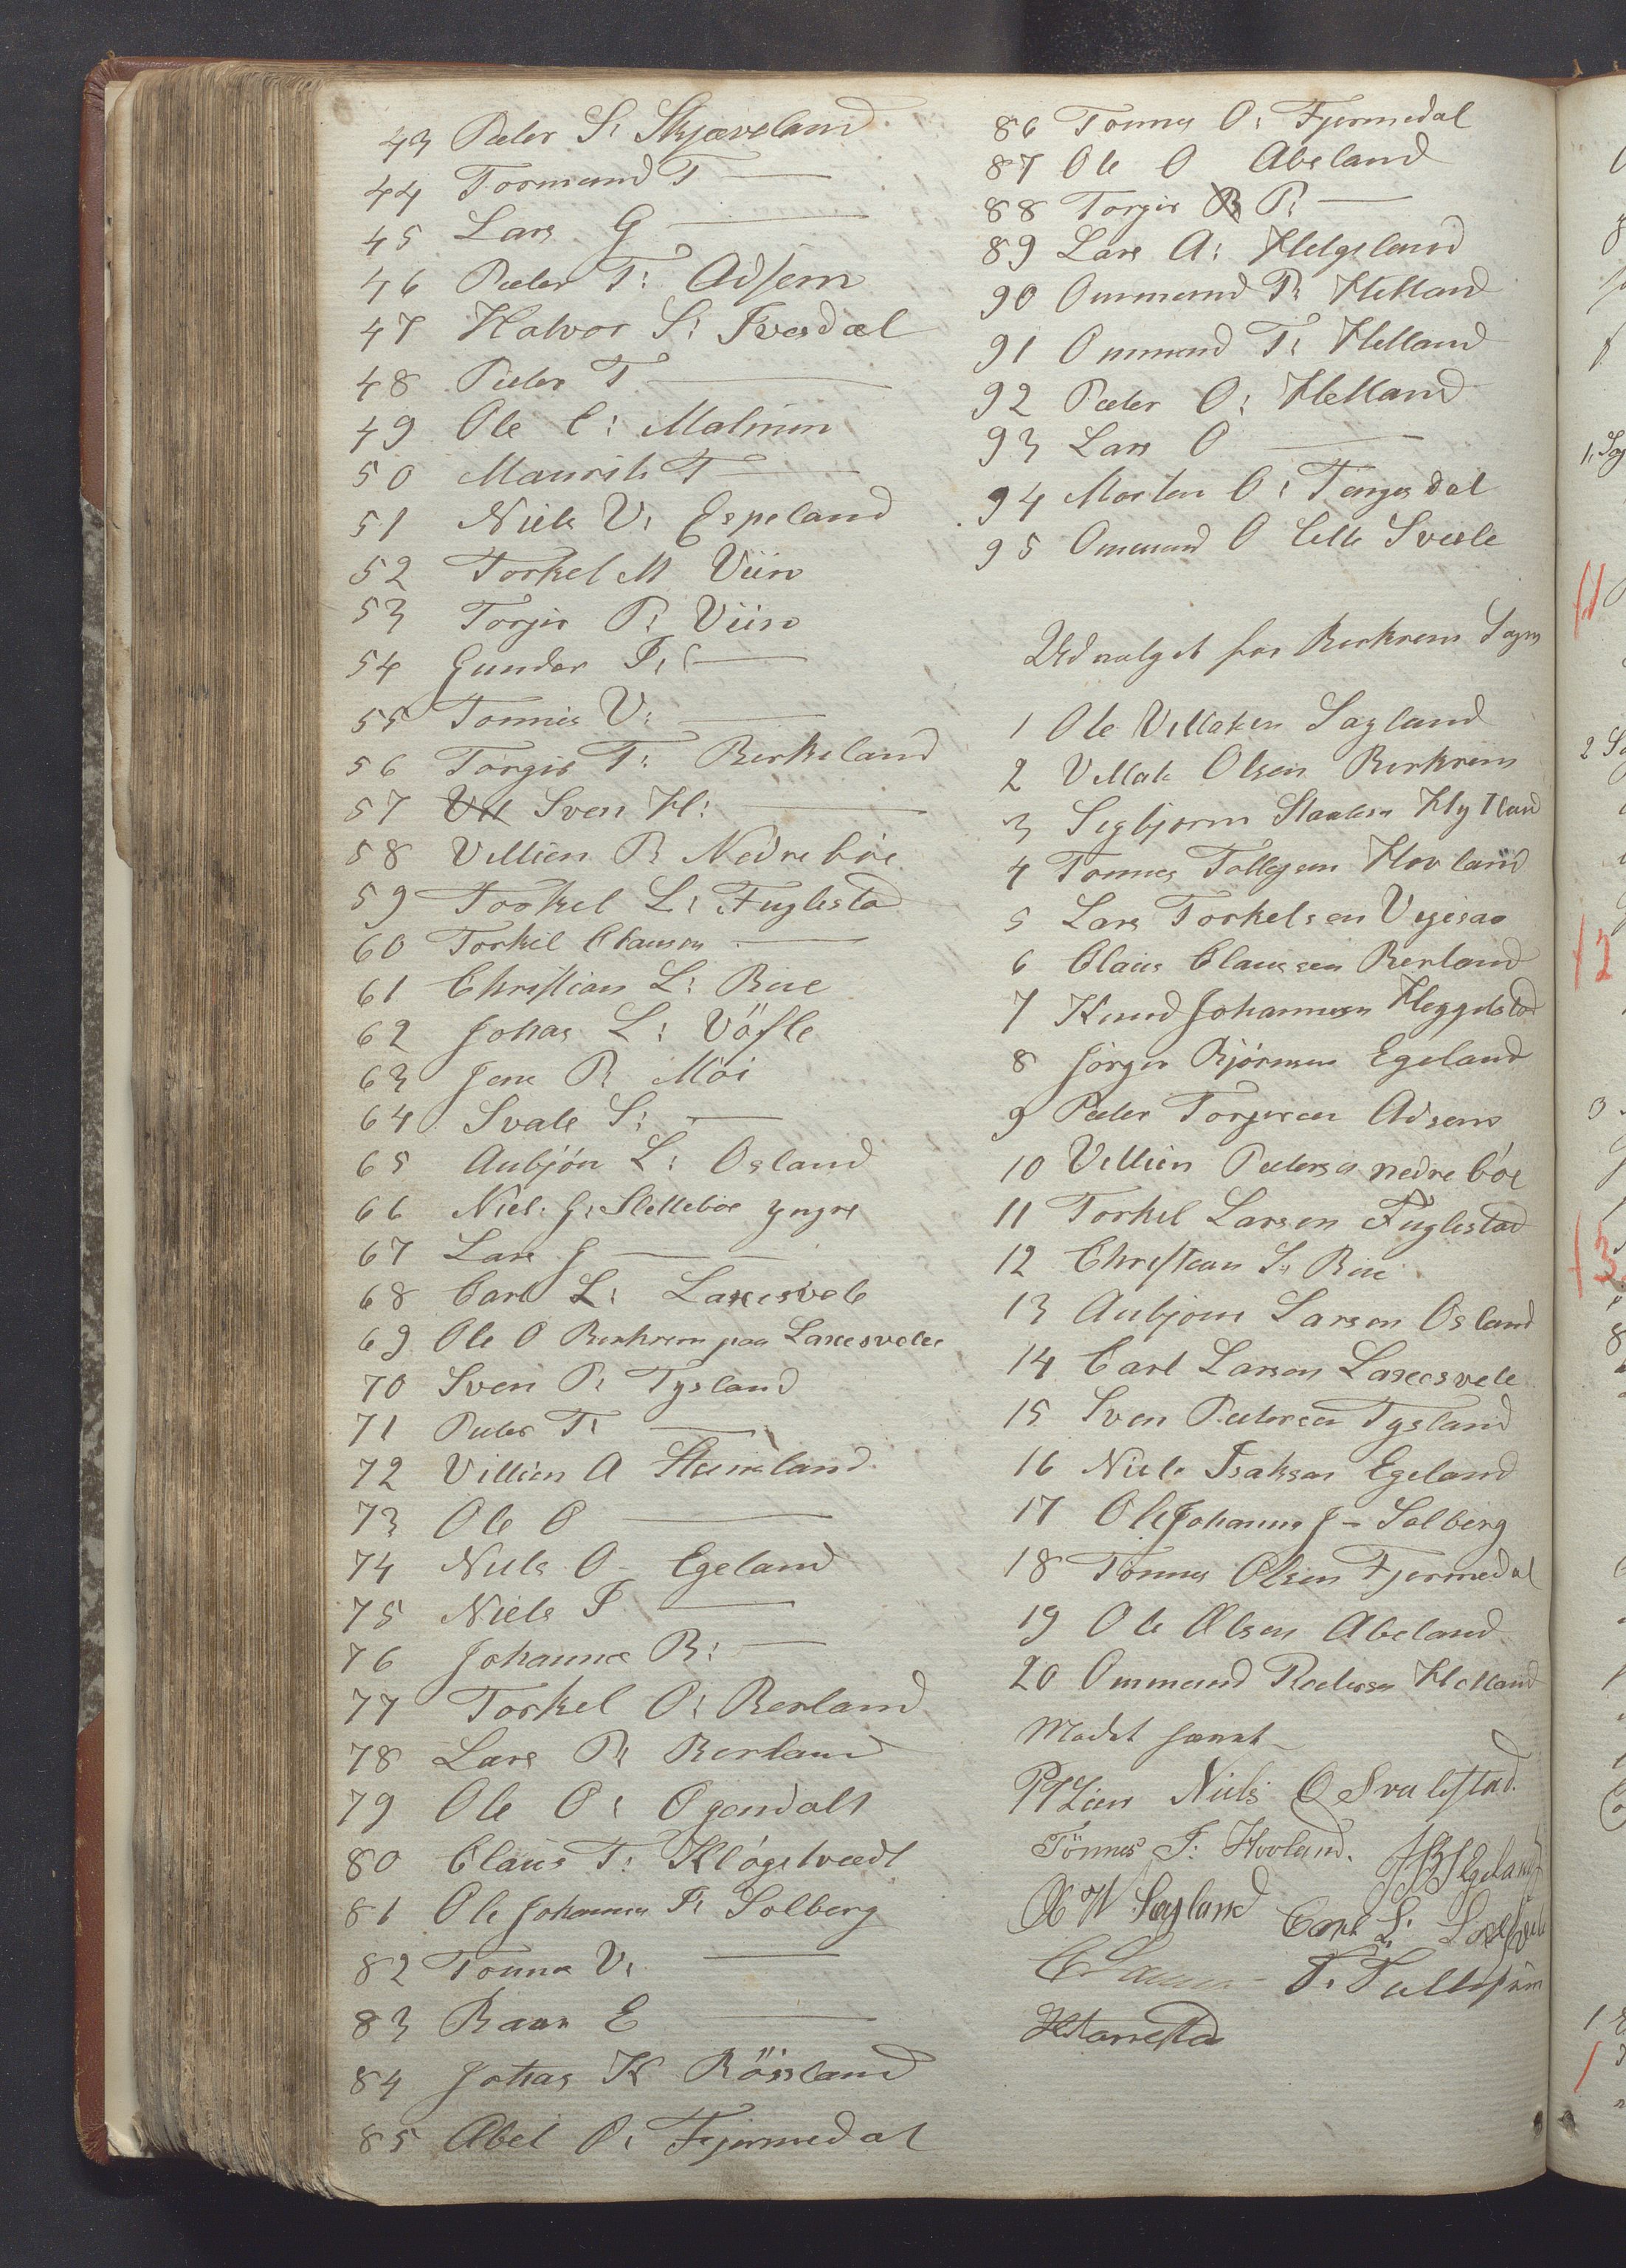 43 Peder S: Skjæveland
44 Tormund T —
45 Lars G —
46 Peder T: Adsem
47 Halvor S: Ivesdal
48 Peder T —
49 Ole C: Malmin
50 Maurits T —
51 Niels V: Espeland
52 Torkel M Viin
53 Torger P: Viin
54 Gunder I: —
55 Tonnis V: —
56 Torgis T: Berkeland
57 Sven H: —
58 Villien P. Nedrebøe
59 Torkel L: Fuglestad
60 Torkil Clausen —
61 Christian L: Bue
62 Johas L: Vöfle
63 Jens P. Moi
64 Svale S: —
65 Aubjón L: Osland
66 Niel. G: Sletteböe yngre
67 Lars G —
68 Carl L: Laxesvele
69 Ole O Berkrem paa Laxesvele
70 Sven P: Tysland
71 Peder T: —
72 Villien A Steinsland
73 Ole O —
74 Niels O — Egeland
75 Niels I —
76 Johannes B: —
77 Torkel O: Berland
78 Lars P: Berland
79 Ole O: Ogendalt
80 Claus T: Klógetvedt
81 Ole Johannes I: Solberg
82 Tonnes V: —
83 Baar E —
84 Johas K Rösland
85 Abel O: Fjermedal
86 Tonnes O: Fjermedal
87 Ole O Abeland
88 Torger P: —
89 Lars A: Helgeland
90 Ommund P: Helland
91 Ommund T: Helland
92 Peder O: Helland
93 Lars O —
94 Morten O: Tengesdal
95 Ommund O Lille Svele
Udvalget for Berkrem Sogn
1 Ole Villaksen Sagland
2 Villak Olsen Berkrem
3 Segbjorn Hytland
4 Tonnes Tollegsen Hovland
5 Lars Torkelsen Vegesaa
6 Claus Claussen Berland
7 Knud Johannesen Heggelstad
8 Jórgen Bjórnsen Egeland
9 Peder Torgersen Adsem
10 Villien Pedersen nedrebóe
11 Torkel Larsen Fuglestad
12 Christian L: Bue
13 Aubjorn Larsen Osland
14 Carl Larsen Laxesvele
15 Sven Pedersen Tysland
16 Niels Isaksen Egeland
17 Ole Johannes J — Solberg
18 Tonnes Olsen Fjermedal
19 Ole Olsen Abeland
20 Ommund Pedersen Helland
Modet hævet —
Niels O Svalestad.
Tönnes T: Hovland. Egeland
O W Sagland Carl L:
T. Tollefsen